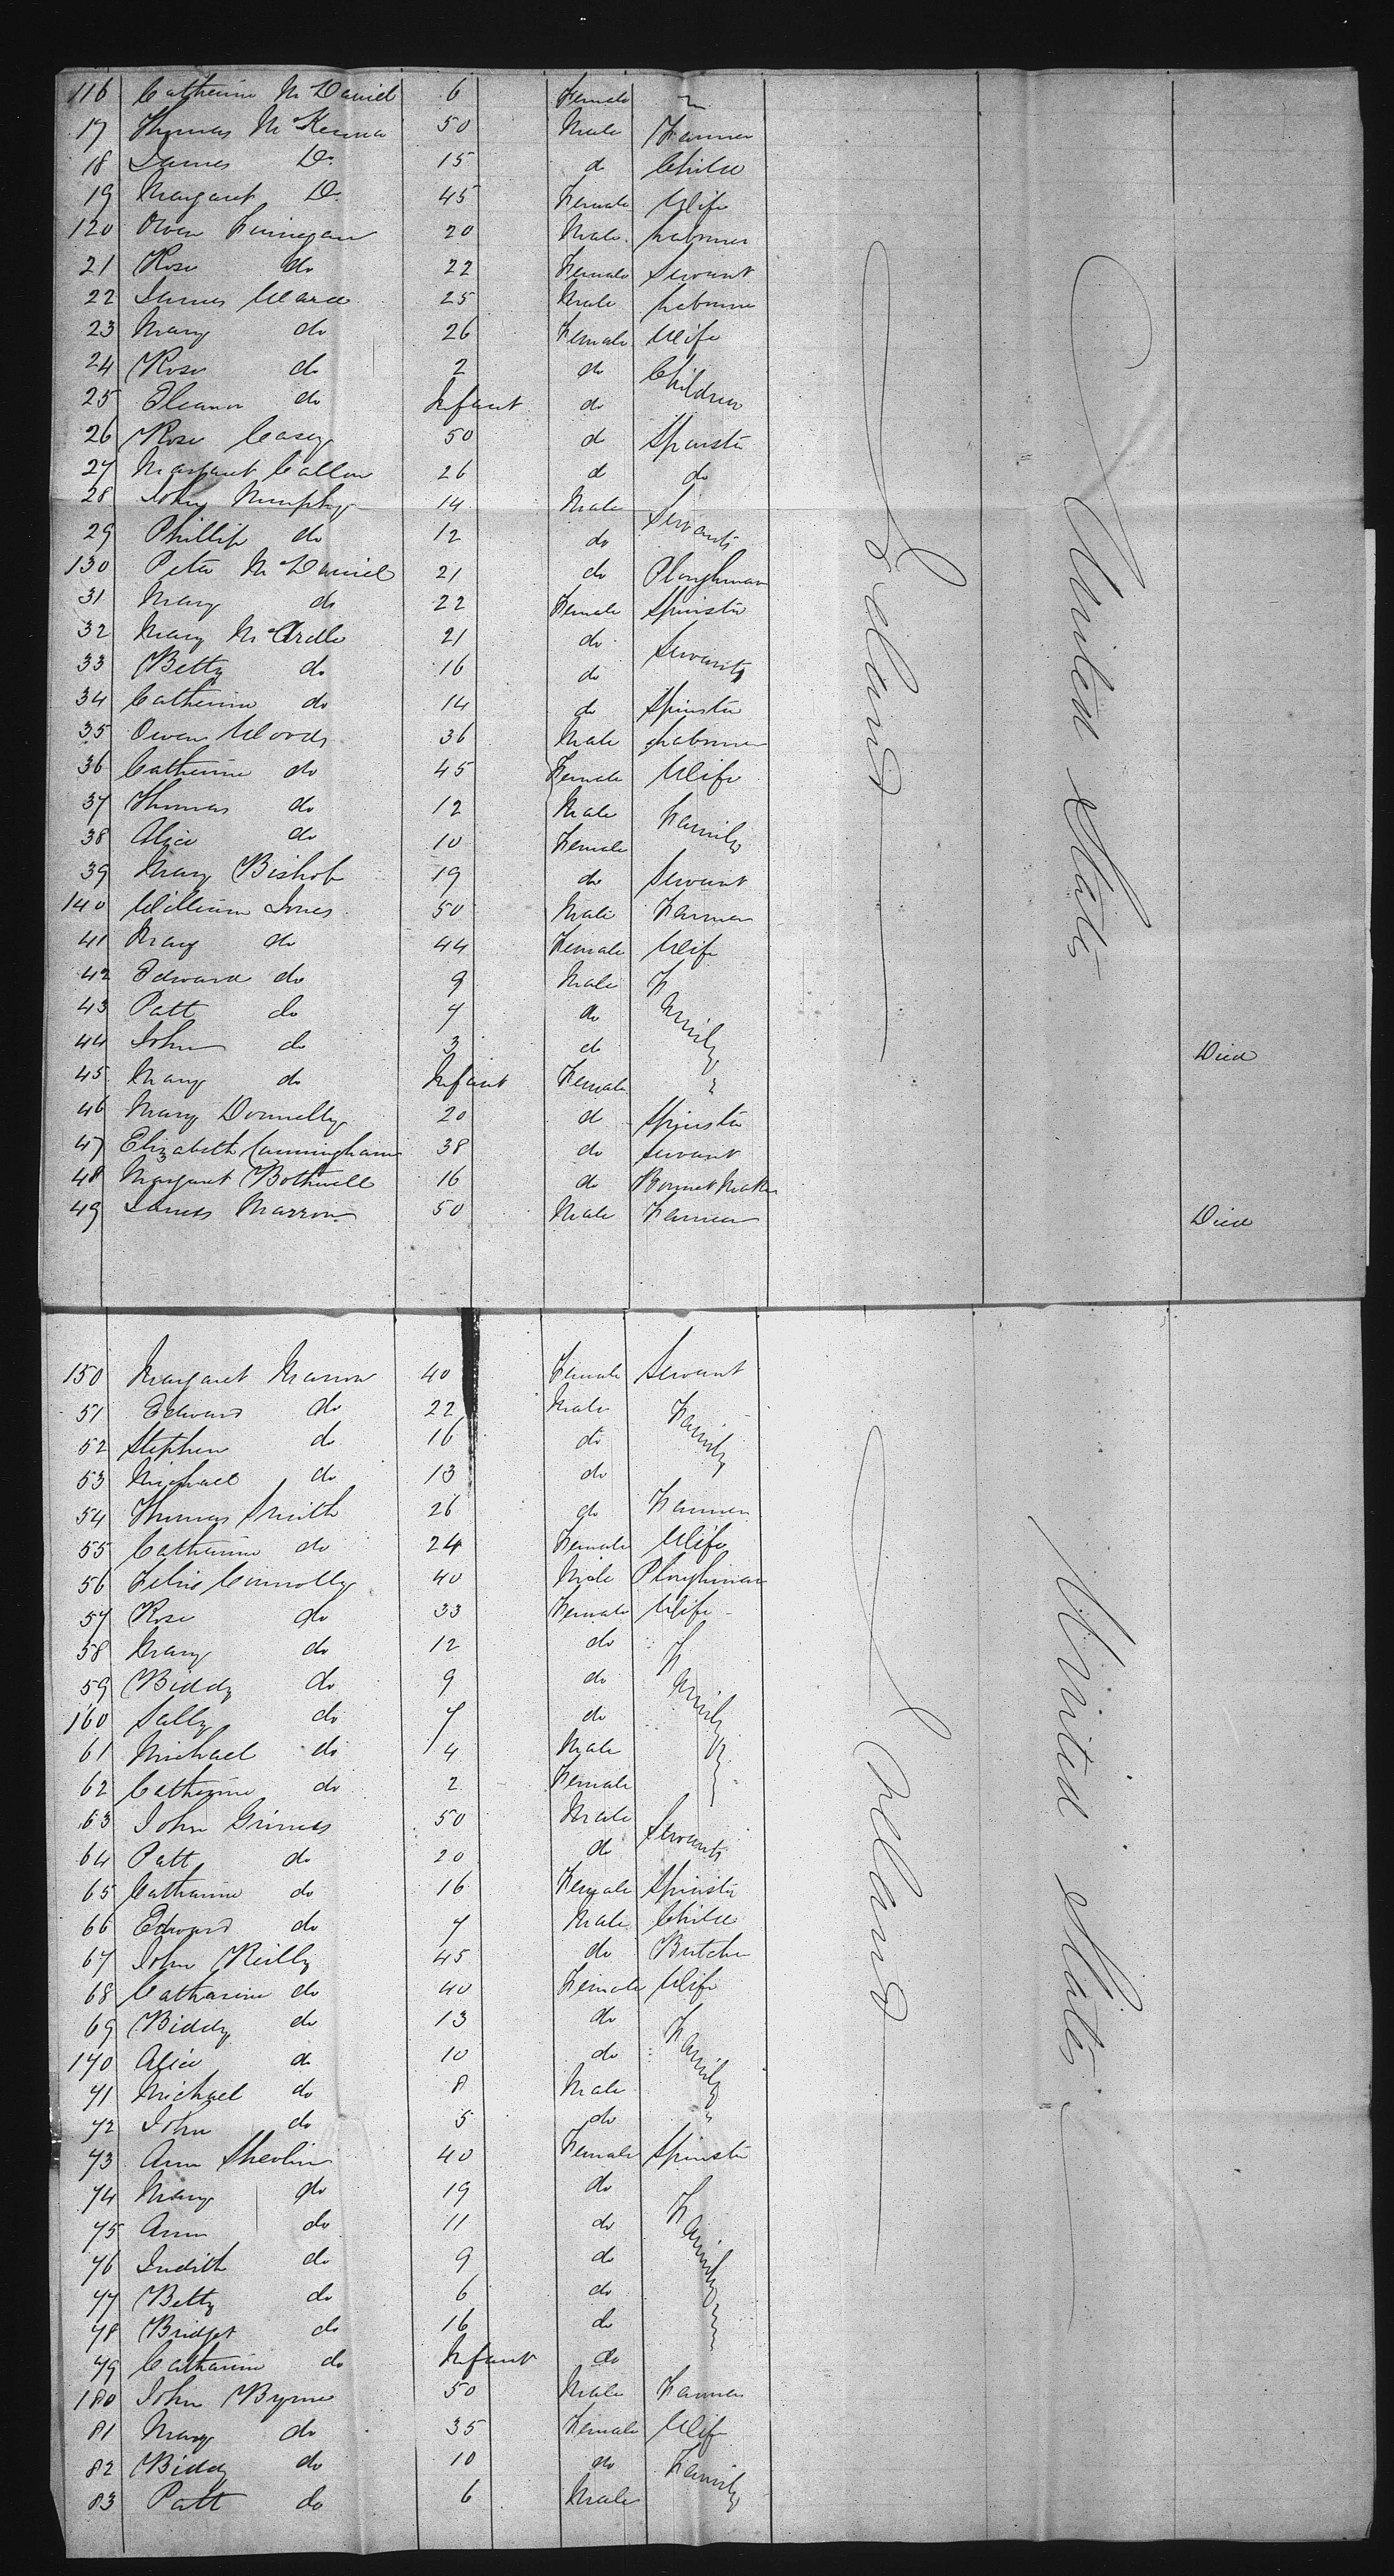 116 Catherine McDaniel 6 Female "
17 Thomas McKenna 50 Male Farmer
18 James Do 15 d Child
19 Margaret Do 45 Female Wife
120 Owen Finnegan 20 Male Labourer
21 Rose do 22 Female Servant
22 James Ward 25 Male Labourer
23 Mary do 26 Female Wife
24 Rose do 2 do Children
25 Eleanor do Infant do
26 Rose Casey 50 d Spinster
27 Margaret Callan 26 d do
28 John Murphy 14 Male Servants
29 Phillip do 12 do
130 Peter McDaniel 21 do Ploughman
31 Mary do 22 Female Spinster
32 Mary McArdle 21 do Servants
33 Betty do 16 do
34 Catherine do 14 do Spinster
35 Owen Woods 36 Male Labourer
36 Catherine do 45 Female Wife
37 Thomas do 12 Male Family
38 Alice do 10 Female
39 Mary Bishop 19 do Servant
140 William Jones 50 Male Farmer
41 Mary do 44 Female Wife
42 Edward do 9 Male Family
43 Patt do 7 do
44 John do 3 do Died
45 Mary do Infant Female
46 Mary Donnelly 20 d Spinster
47 Elizabeth Cunningham 38 do Servant
48 Margaret Bothwell 16 do Bonnet Maker
49 James Marron 50 Male Farmer Died
Ireland
United States
150 Margaret Marron 40 Female Servant
51 Edward do 22 Male Family
52 Stephen do 16 do
53 Michael do 13 do
54 Thomas Smith 26 do Farmer
55 Catherine do 24 Female Wife
56 Felix Connolly 40 Male Ploughman
57 Rose do 33 Female Wife
58 Mary do 12 do Family
59 Biddy do 9 do
160 Sally do 7 do
61 Michael do 4 Male
62 Catherine do 2 Female
63 John Grimes 50 Male Servants
64 Patt do 20 do
65 Catharine do 16 Female Spinster
66 Edward do 7 Male Child
67 John Reilly 45 do Butcher
68 Catharine do 40 Female Wife
69 Biddy do 13 do Family
170 Alice d 10 do
71 Michael do 8 Male
72 John do 5 do
73 Ann Shevlin 40 Female Spinster
74 Mary do 19 do Family
75 Ann do 11 do
76 Judith do 9 do
77 Betty do 6 do
78 Bridget do 16 do
79 Catharine do Infant do
180 John Byrne 50 Male Farmer
81 Mary do 35 Female Wife
82 Biddy do 10 do Family
83 Patt do 6 Male
Ireland
United States